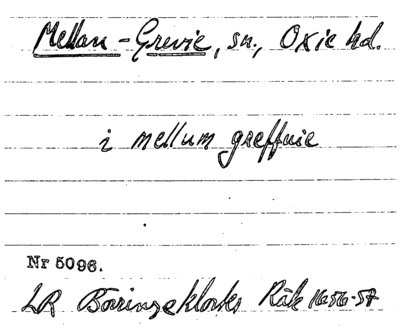 Mellan-Grevie, sn., Oxie hd.
i mellum greffuie
Nr 5096.
LR Börringeklosters Räk 1656-57